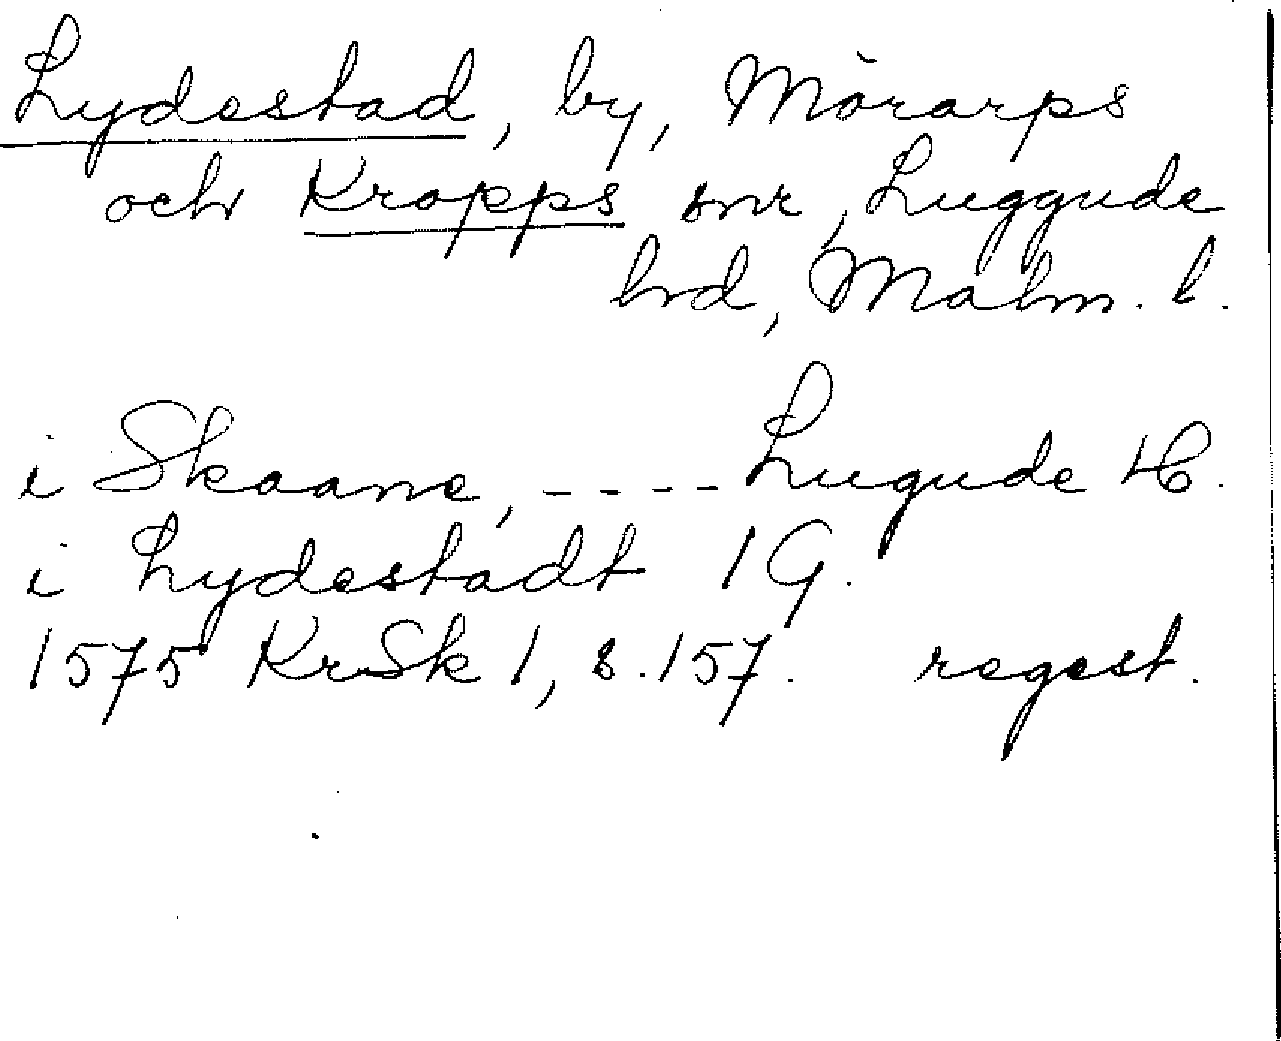 Lydestad, by, Mörarps
och Kropps snr, Luggude
hrd, Malm. l.
i Skaane, ---- Lugude H.
i Lydestadt 1 G.
1575 KrSk 1, s. 157. regest.